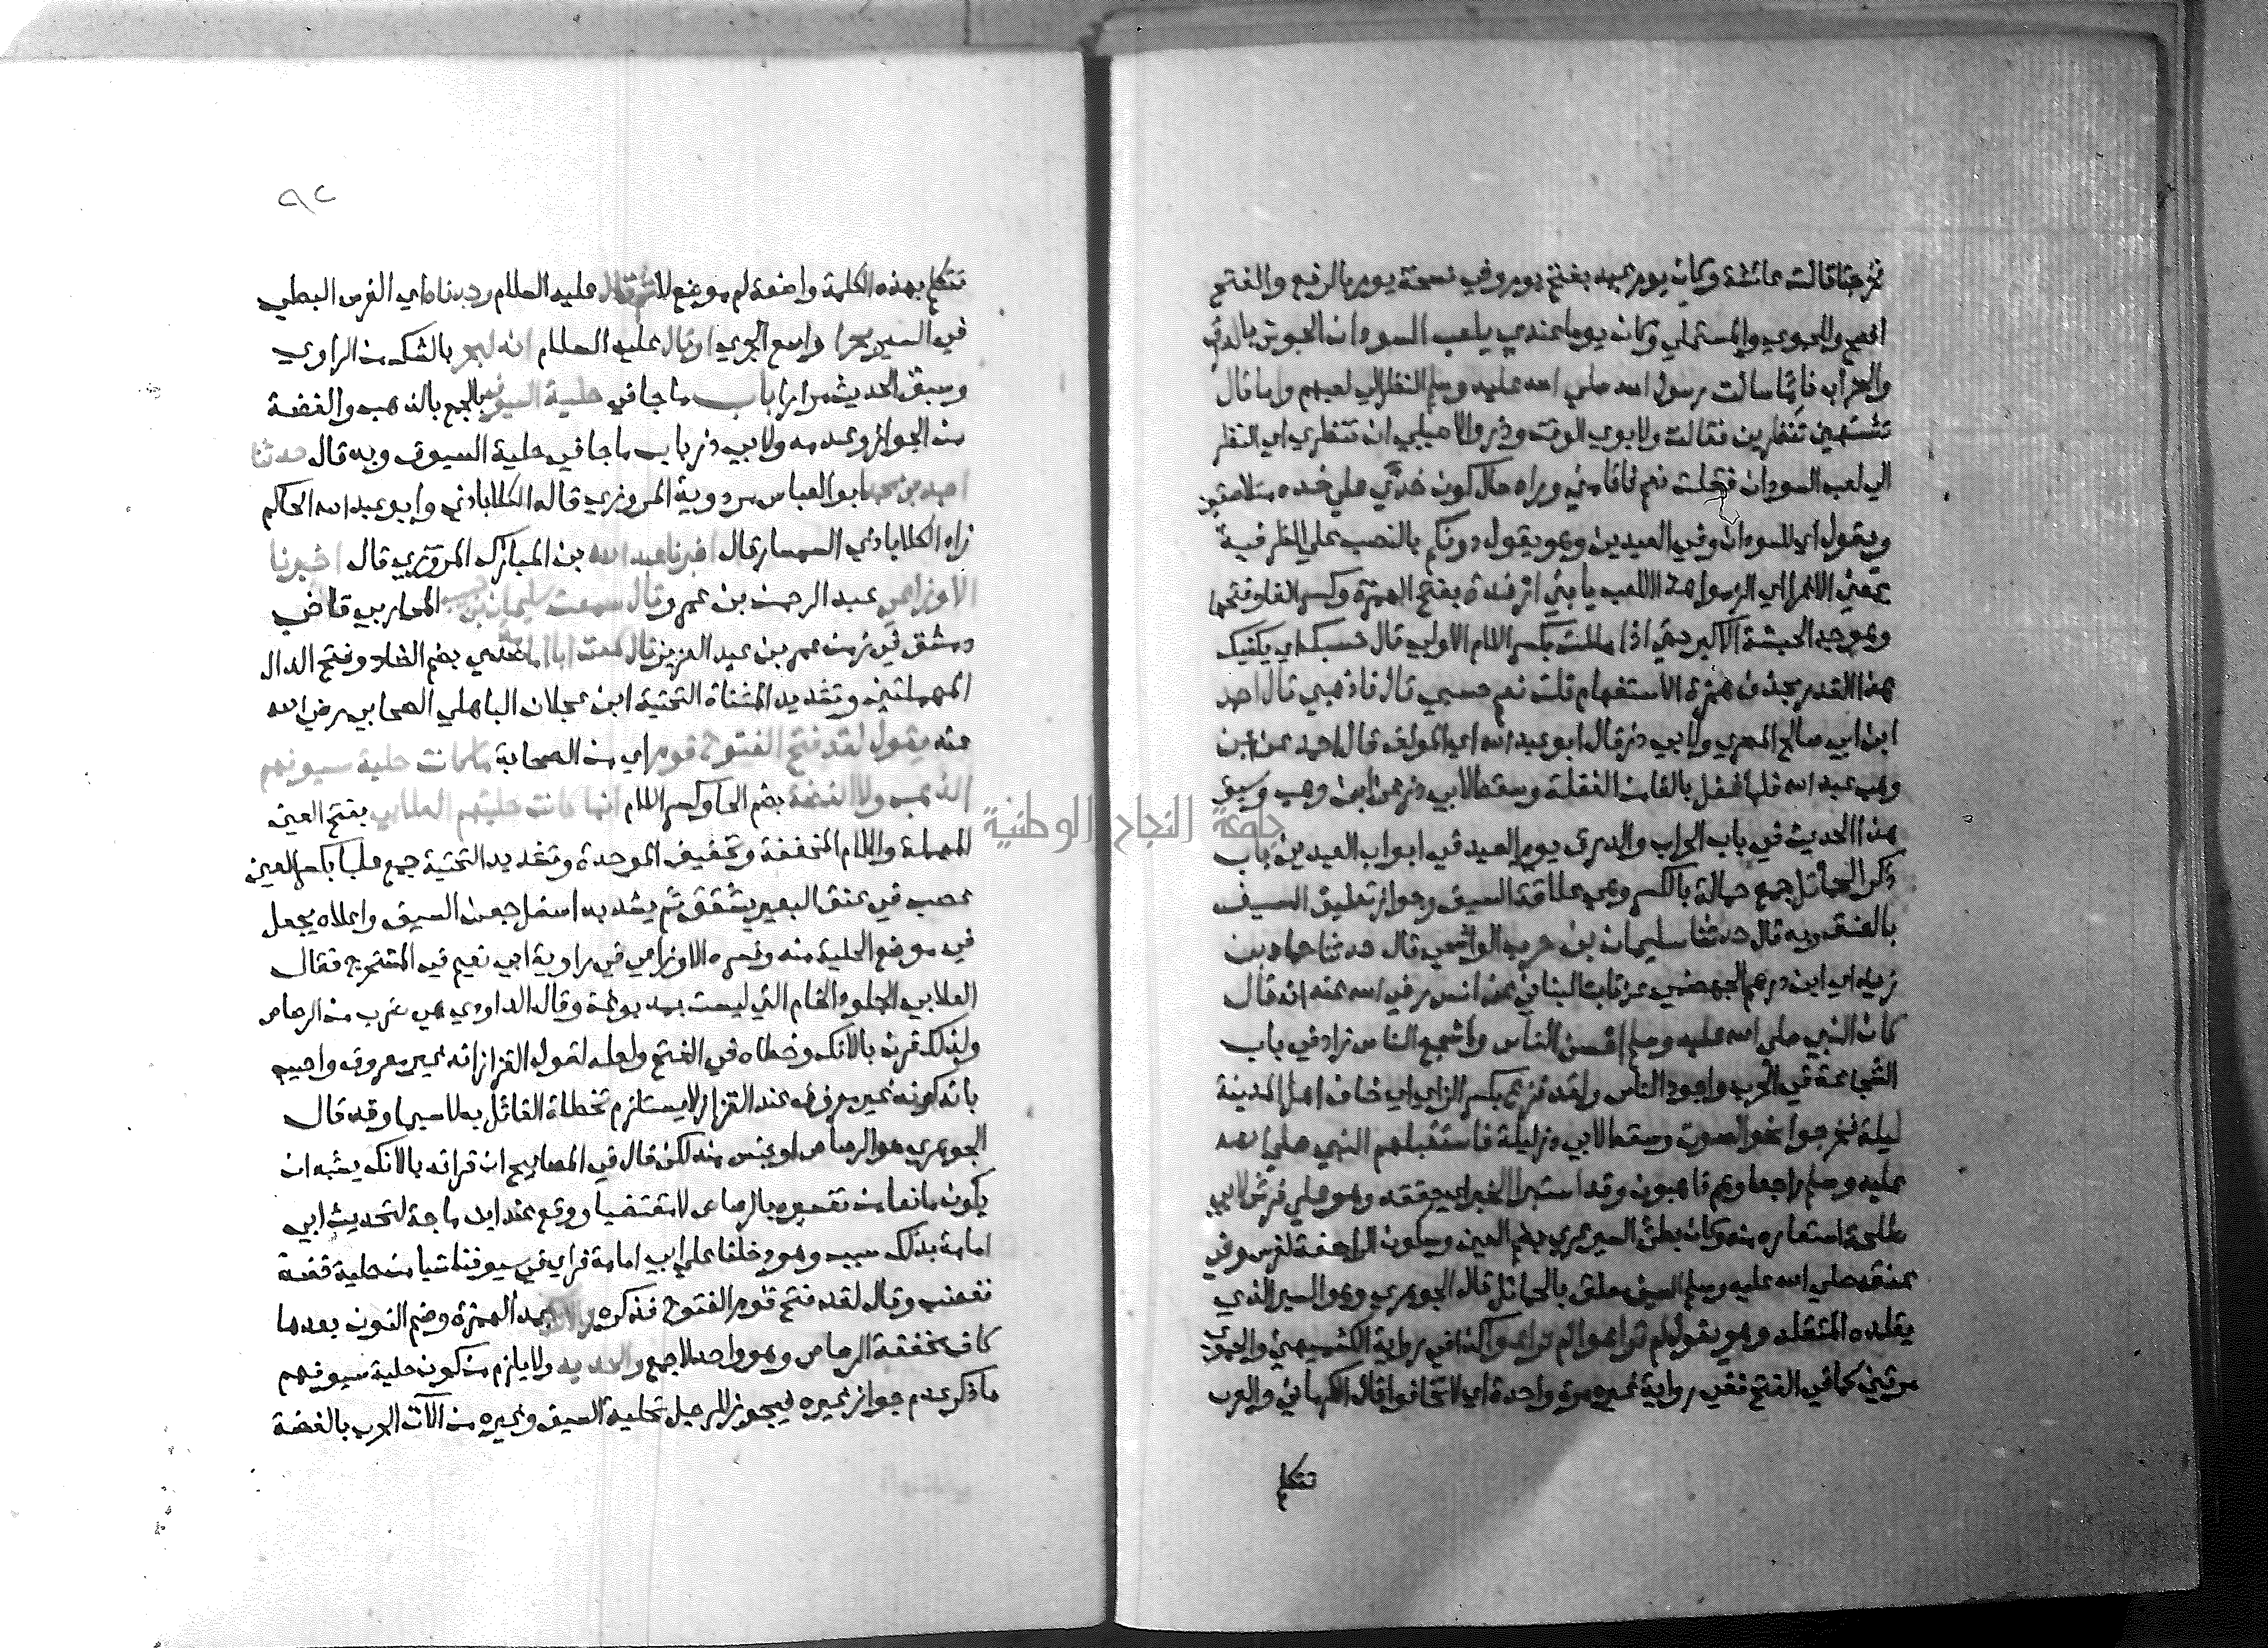 فخرجنا قالت عائشة وكان يوم عيد بفتح يوم وفي نسخة يوم بالرفع والفتح
افصح وللحموي والمستملي وكان يوما عندي يلعب السودان الحبوش بالدرق
والحراب فاما سالت رسول الله صلى الله عليه وسلم النظر الى لعبهم واما قال
تشتهين تنظرين فقالت ولابوي الوقت وذر والاصيلي ان تنظري اي النظر
الى لعب السودان فقلت نعم فاقامني وراه حال كون خدي على خده متلاصقين
ويقول اي للسودان وفي العيدين وهو يقول دونكم بالنصب على الظرفية
بمعنى الاغرا اي الزموا هذا اللعب يا بني ارفدة بفتح الهمزة وكسر الفاء وفتحها
وهو جد الحبشة الاكبر حتى اذا مللت بكسر اللام الاولى قال حسبك اي يكفيك
هذا القدر بحذف همزة الاستفهام قلت نعم حسبي قال فاذهبي قال احمد
ابن ابي صالح المصري ولابي ذر قال ابو عبد الله اي المولف قال احمد عن ابن
وهب عبد الله فلما غفل بالفاء من الغفلة وسقط لابي ذر عن ابن وهب وسبق
هذا الحديث في باب الحراب والدرق يوم العيد في ابواب العيدين باب
ذكر الحمائل جمع حمالة بالكسر وهي علاقة السيف وجواز تعليق السيف
بالعنق وبه قال حدثنا سليمان بن حرب الواشحي قال حدثنا حماد بن
زيد اي ابن درهم الجهضمي عن ثابت البناني عن انس رضي الله عنه انه قال
كان النبي صلى الله عليه وسلم احسن الناس واشجع الناس زاد في باب
الشجاعة في الحرب واجود الناس ولقد فزع بكسر الزاي اي خاف اهل المدينة
ليلة فخرجوا نحو الصوت وسقط لابي ذر ليلة فاستقبلهم النبي صلى الله
عليه وسلم راجعا وهم ذاهبون وقد استبرا الخبر اي حققه وهو على فرس لابي
طلحة استعاره منه وكان بطئ السير عري بضم العين وسكون الرا صفة لفرس وفي
عنقه صلى الله عليه وسلم السيف معلق بالحمائل قال الجوهري وهو السير الذي
يقلده المتقلد وهو يقول لم تراعوا لم تراعوا كذا في رواية الكشميهني والحموي
مرتين كما في الفتح ففي رواية غيره مرة واحدة اي لا تخافوا قال الكرماني والعرب
تتكلم
٩٢
تتكلم بهذه الكلمة واضعة لم موضع لا ثم قال عليه السلام وجدناه اي الفرس البطي
في السير بحرا واسع الجري او قال عليه السلام انه لبحر بالشك من الراوي
وسبق الحديث مرارا باب ما جا في حلية السيوف بالجمع بالذهب والفضة
من الجواز وعدمه ولابي ذر باب ما جا في حلية السيوف وبه قال حدثنا
احمد بن محمد ابو العباس مردوية المروزي قاله الكلاباذي وابو عبد الله الحاكم
زاد الكلاباذي السمسار قال اخبرنا عبد الله بن المبارك المروزي قال اخبرنا
الاوزاعي عبد الرحمن بن عمرو قال سمعت سليمان بن حبيب المحاربي قاضي
دمشق في زمن عمر بن عبد العزيز قال سمعت ابا امامة صدي بضم الصاد وفتح الدال
المهملتين وتشديد المثناة التحتية ابن عجلان الباهلي الصحابي رضي الله
عنه يقول لقد فتح الفتوح قوم اي من الصحابة ما كانت حلية سيوفهم
الذهب ولا الفضة بضم الحا وكسر اللام انما كانت حليتهم العلابي بفتح العين
المهملة واللام المخففة وتخفيف الموحدة وتشديد التحتية جمع علبا بكسر العين
عصب في عنق البعير يشقق ثم يشد به اسفل جفن السيف واعلاه يجعل
في موضع الحلية منه وفسره الاوزاعي في رواية ابي نعيم في المستخرج فقال
العلابي الجلود الخام التي ليست بمدبوغة وقال الداودي هي ضرب من الرصاص
ولذلك قرن بالانك وخطاه في الفتح ولعله لقول القزاز انه غير معروف واجيب
بان كونه غير معروف عند القزاز لا يستلزم تخطئة القائل به لا سيما وقد قال
الجوهري هو الرصاص او جنس منه لكن قال في المصابيح ان قرانه بالانك يشبه ان
يكون مانعا من تفسيره بالرصاص لا مقتضيا ووقع عند ابن ماجة لتحديث ابي
امامة بذلك سبب وهو دخلنا على ابي امامة فراى في سيوفنا شيا من حلية فضة
فغضب وقال لقد فتح قوم الفتوح فذكره والانك بمد الهمزة وضم النون بعدها
كاف مخففة الرصاص وهو واحد لا جمع له والحديد ولا يلزم من كون حلية سيوفهم
ما ذكر عدم جواز غيره فيجوز للرجل تحلية السيف وغيره من آلات الحرب بالفضة
جامعة النجاح الوطنية